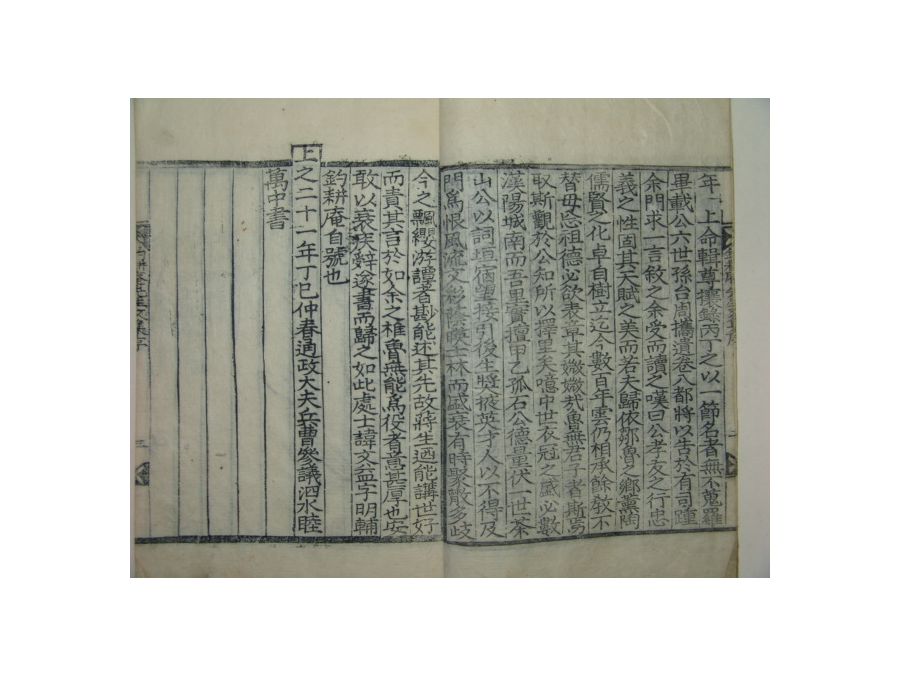 年 上命輯尊攘錄丙丁之以一節名者無不蒐羅
畢載公六世孫台周攜遺卷八都將以告於有司踵
余門求一言敘之余受而讀之嘆曰公孝友之行忠
義之性固其天賦之美而若夫歸依鄒魯之鄉薰陶
儒賢之化卓自樹立迄今數百年雲仍相承餘敎不
替毋忝祖德必欲表章其媺媺哉魯無君子者斯焉
取斯觀於公知所以擇里矣噫中世衣冠之盛必數
漢陽城南而吾里實擅甲乙孤石公德量伏一世茶
山公以詞垣宿望接引後生奬掖英才人以不得及
門爲恨風流文彩蔭暎士林而盛衰有時聚散多岐
今之飄纓游譚者尠能述其先故蔣生迺能講世好
而責其言於如余之椎魯無能爲役者意甚厚也安
敢以衰疾辭遂書而歸之如此處士諱文益字明輔
釣耕庵自號也
上之二十一年丁巳仲春通政大夫兵曹參議泗水睦
萬中書